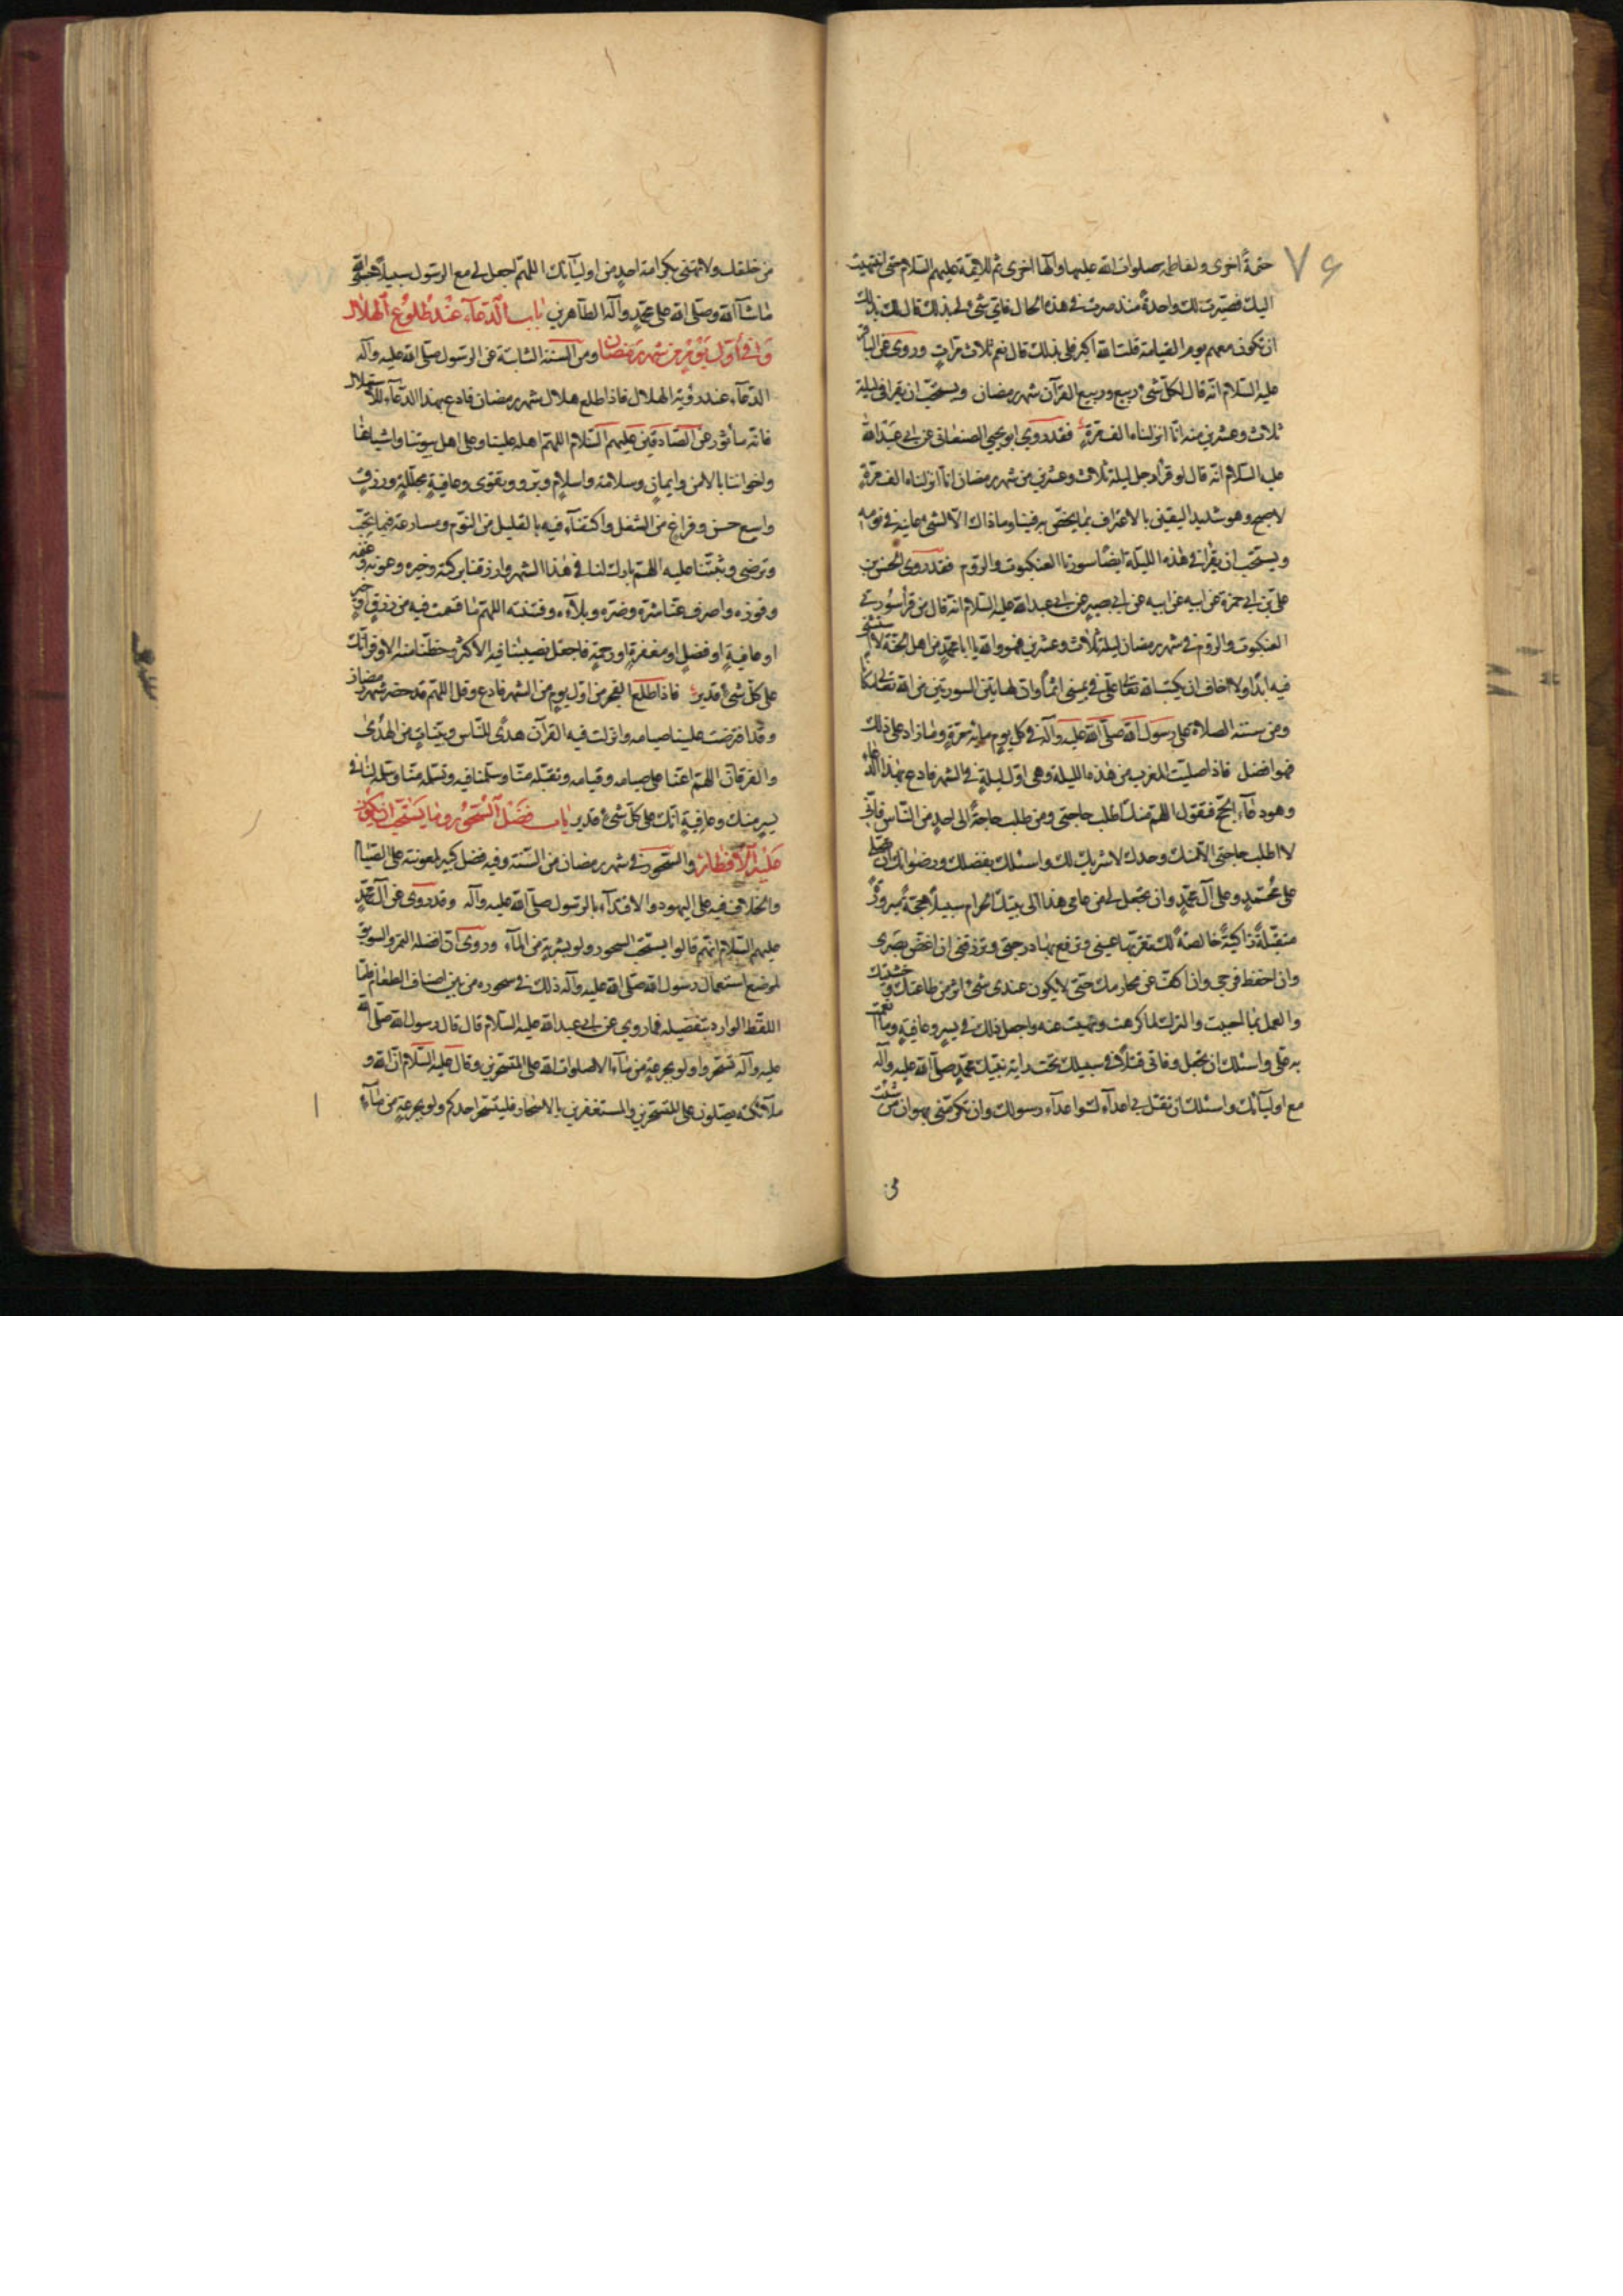 ٧۶
ختمةً اخرى ولفاطمة صلوات الله عليها واكها اخرى ثم للائمّة عليهم السلام حتى انتهيت
اليك فصيّرت لك واحدةً منذ صرت في هذه الحال فايّ شئ لي بذلك قال لك بذلك
ان تكون معهم يوم القيامة قلت الله اكبر فلي بذلك قال نعم ثلاث مرّاتٍ وروى عن الباقر
عليه السّلام انّه قال لكلّ شئ ربيع وربيع القرآن شهر رمضان ويستحبّ ان يقرا في ليلة
ثلاث وعشرين منه انّا انزلناه الف مرّةٍ فقد روى ابو يحيى الصنعاني عن ابي عبد الله
عليه السلام انّه قال لو قرأ رجل ليلة ثلاث وعشرين من شهر رمضان انّا انزلناه الف مرّةٍ
لاصبح وهو شديد اليقين بالاعتراف بما يختصّ به فينا وما ذاك الّا لشئ عاينه في نومه
ويستحب ان يقرأ في هذه الليلة ايضًا سورتا العنكبوت والروم فقد روى الحسن بن
علي بن ابي حمزة عن ابيه عن ابي بصير عن ابي عبد الله عليه السلام انّه قال من قرأ سورتي
العنكبوت والروم في شهر رمضان ليلة ثلاث وعشرين فهو والله يا ابا محمّد من اهل الجنّة لا استثنى
فيه ابدًا ولا اخاف ان يكتب الله تعالى علّي في يميني اثمًا وانّ لهاتين السورتين من الله تعالى مكانًا
ومن سننه الصلاة على رسول الله صلّى الله عليه وآله في كل يوم مائة مرّةٍ وما زاد على ذلك
فهو افضل فاذا صلّيت المغرب من هذه الليلة وهي اوّل ليلةٍ في الشهر فادع بهذا الدّعاء
وهو دعاء الحجّ فتقول اللهمّ منك اطلب حاجتي ومن طلب حاجةً الى احدٍ من النّاس فانّي
لا اطلب حاجتي الّا منك وحدك لا شريك لك واسئلك بفضلك ورضوانك ان تصلّي
على محمّدٍ وعلى آل محمّدٍ وان تجعل لي من عامي هذا الى بيتك الحرام سبيلًا حجّةً مبرورةً
متقبّلةً زاكيةً خالصةً لك تقرّ بها عيني وترفع بها درجتي وترزقني ان اغضّ بصري
وان احفظ فرجي وان اكفّ عن محارمك حتّى لا يكون عندي شئ اثر من طاعتك وخشيتك
والعمل بما احببت والترك لما كرهت ونهيت عنه واجعل ذلك في يسرٍ وعافيةٍ وما انعمت
به عليّ واسئلك ان تجعل وفاتي قتلًا في سبيلك تحت راية نبيّك محمّدٍ صلى الله عليه وآله
مع اوليآئك واسئلك ان تقتل بي اعدآءك واعدآء رسولك وان تكرمني بهوان من شئت
من خلقك ولا تهنّي بكرامة احدٍ من اوليآئك اللهمّ اجعل لي مع الرسول سبيلًا حسبي الله
ما شآء الله وصلّى الله على محمّدٍ وآله الطاهرين باب الدّعآء عند طلوع الهلال
وفي أوّل يومٍ من شهر رمضان ومن السنّة الثابتة عن الرسول صلّى الله عليه وآله
الدعآء عند رؤية الهلال فاذا طلع هلال شهر رمضان فادع بهذا الدعآء للاستهلال
فانّه مأثور عن الصّادقين عليهم السّلام اللهمّ اهله علينا وعلى اهل بيوتنا واشياعنا
واخواننا بالامن وايمانٍ وسلامة واسلامٍ وبرّ وبتقوى وعافيةٍ مجلّلةٍ ورزقٍ
واسع حسن وفراغ من الشغل واكتفآءٍ فيه بالقليل من النّوم ومسارعة فيما تحبّ
وترضى وثبّتنا عليه اللهم بارك لنا في هذا الشهر وارزقنا بركته وخيره وعونه وغنمه
وفوزه واصرف عنّا شرّه وضرّه وبلآءه وفتنته اللهمّ ما قسمت فيه من رزقٍ او خيرٍ
او عافيةٍ او فضلٍ او مغفرةٍ او رحمةٍ فاجعل نصيبنا فيه الاكثر وحظّنا منه الاوفر انّك
على كلّ شئ قدير فاذا طلع الفجر من اوّل يومٍ من الشهر فادع وقل اللهمّ قد حضر شهر رمضان
وقد افترضت علينا صيامه وانزلت فيه القرآن هدًى للنّاس وبيّناتٍ من الهُدى
والفرقان اللهمّ اعنّا على صيامه وقيامه وتقبّله منّا وسلّمنا فيه وتسلّمه منّا وسلّمه لنا في
يسرٍ منك وعافيةٍ انّك على كلّ شئ قدير باب فضل السّحور وما يستحب ان يكون
عليه الافطار والسّحور في شهر رمضان من السنّة وفيه فضل كبير لمعونته على الصّيام
والخلاف فيه على اليهود والاقتدآء بالرسول صلّى الله عليه وآله وقد روى عن آل محمّدٍ
عليهم السّلام انّهم قالوا يستحب السحور ولو بشربةٍ من المآء وروى انّ افضله التمر والسويق
لموضع استعمال رسول الله صلّى الله عليه وآله ذلك في سحوره من بين اصناف الطعام فامّا
اللفظ الوارد بتفصيله فما روي عن ابي عبد الله عليه السّلام قال قال رسول الله صلى الله
عليه وآله تسحّروا ولو بجرعةٍ من مآء الا صلوات الله على المتسحّرين وقال عليه السّلام انّ الله و
ملآئكته يصلّون على المتسحّرين والمستغفرين بالاسحار فليتسحّر احدكم ولو بجرعةٍ من مآءٍ
من